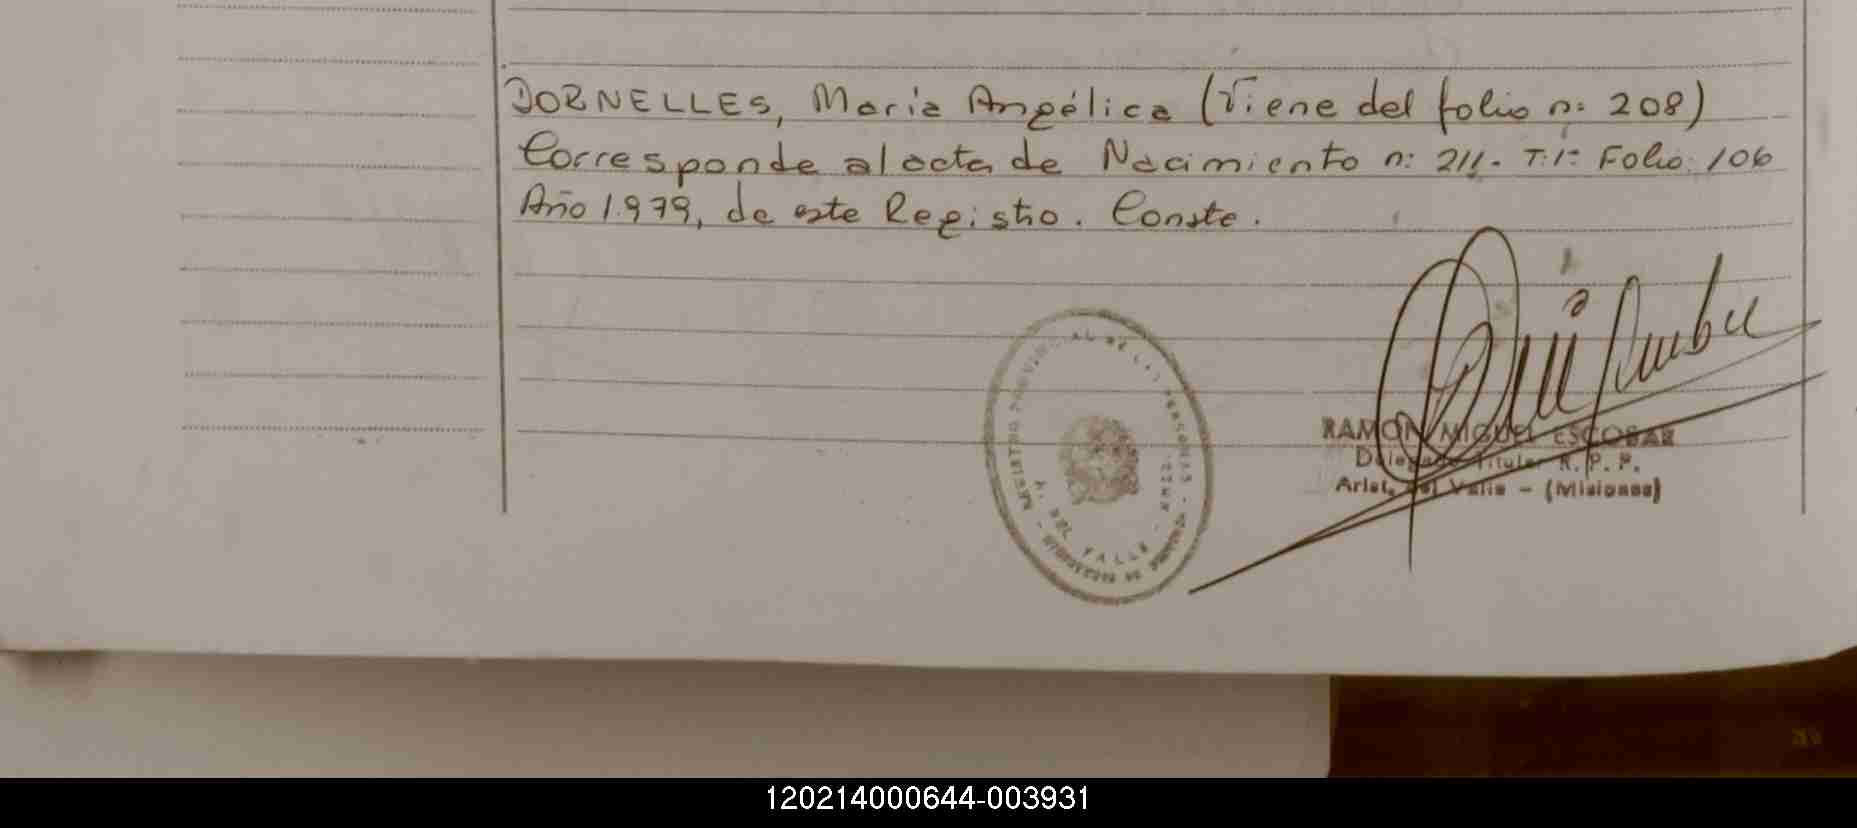 DORNELLES, María Angélica (Viene del folio n: 208)
Corresponde al acta de Nacimiento n: 211. T:1: Folio: 106
Año 1.979, de este Registro. Conste.
REGISTRO PROVINCIAL DE LAS PERSONAS
A. DEL VALLE
RAMON MIGUEL ESCOBAR
Delegado Titular R. P. P.
Arist. del Valle - (Misiones)
120214000644-003931